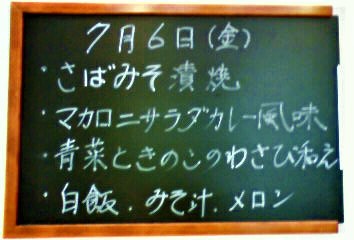 7月6日(金)
・さばみそ漬焼
・マカロニサラダカレー風味
・青菜ときのこのわさび和え
・白飯.みそ汁.メロン